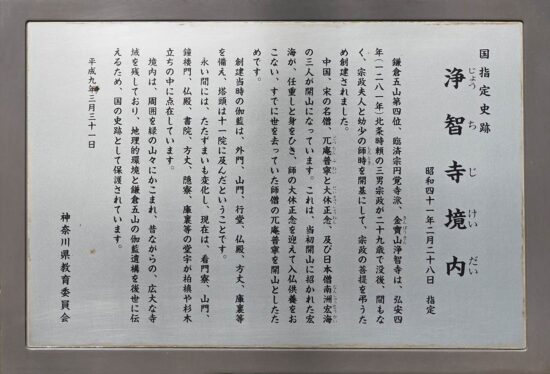 国指定史跡
浄智寺境内
じょう ち じ けい だい
昭和四十一年二月二十八日 指定
鎌倉五山第四位、臨済宗円覚寺派、金寶山浄智寺は、弘安四
年(一二八一年)北条時頼の三男宗政が二十九歳で没後、間もな
く、宗政夫人と幼少の師時を開基にして、宗政の菩提を弔うた
め創建されました。
中国、宋の名僧、兀庵普寧と大休正念、及び日本僧南洲宏海
の三人が開山になっています。これは、当初開山に招かれた宏
海が、任重しと身をひき、師の大休正念を迎えて入仏供養をお
こない、すでに世を去っていた師僧の兀庵普寧を開山としたた
めです。
創建当時の伽藍は、外門、山門、行堂、仏殿、方丈、庫裏等
を備え、塔頭は十一院に及んだということです。
永い間には、たたずまいも変化し、現在は、看門寮、山門、
鐘楼門、仏殿、書院、方丈、隠寮、庫裏等の堂宇が柏槇や杉木
立ちの中に点在しています。
境内は、周囲を緑の山々にかこまれ、昔ながらの、広大な寺
域を残しており、地理的環境と鎌倉五山の伽藍遺構を後世に伝
えるため、国の史跡として保護されています。
平成九年三月三十一日
神奈川県教育委員会